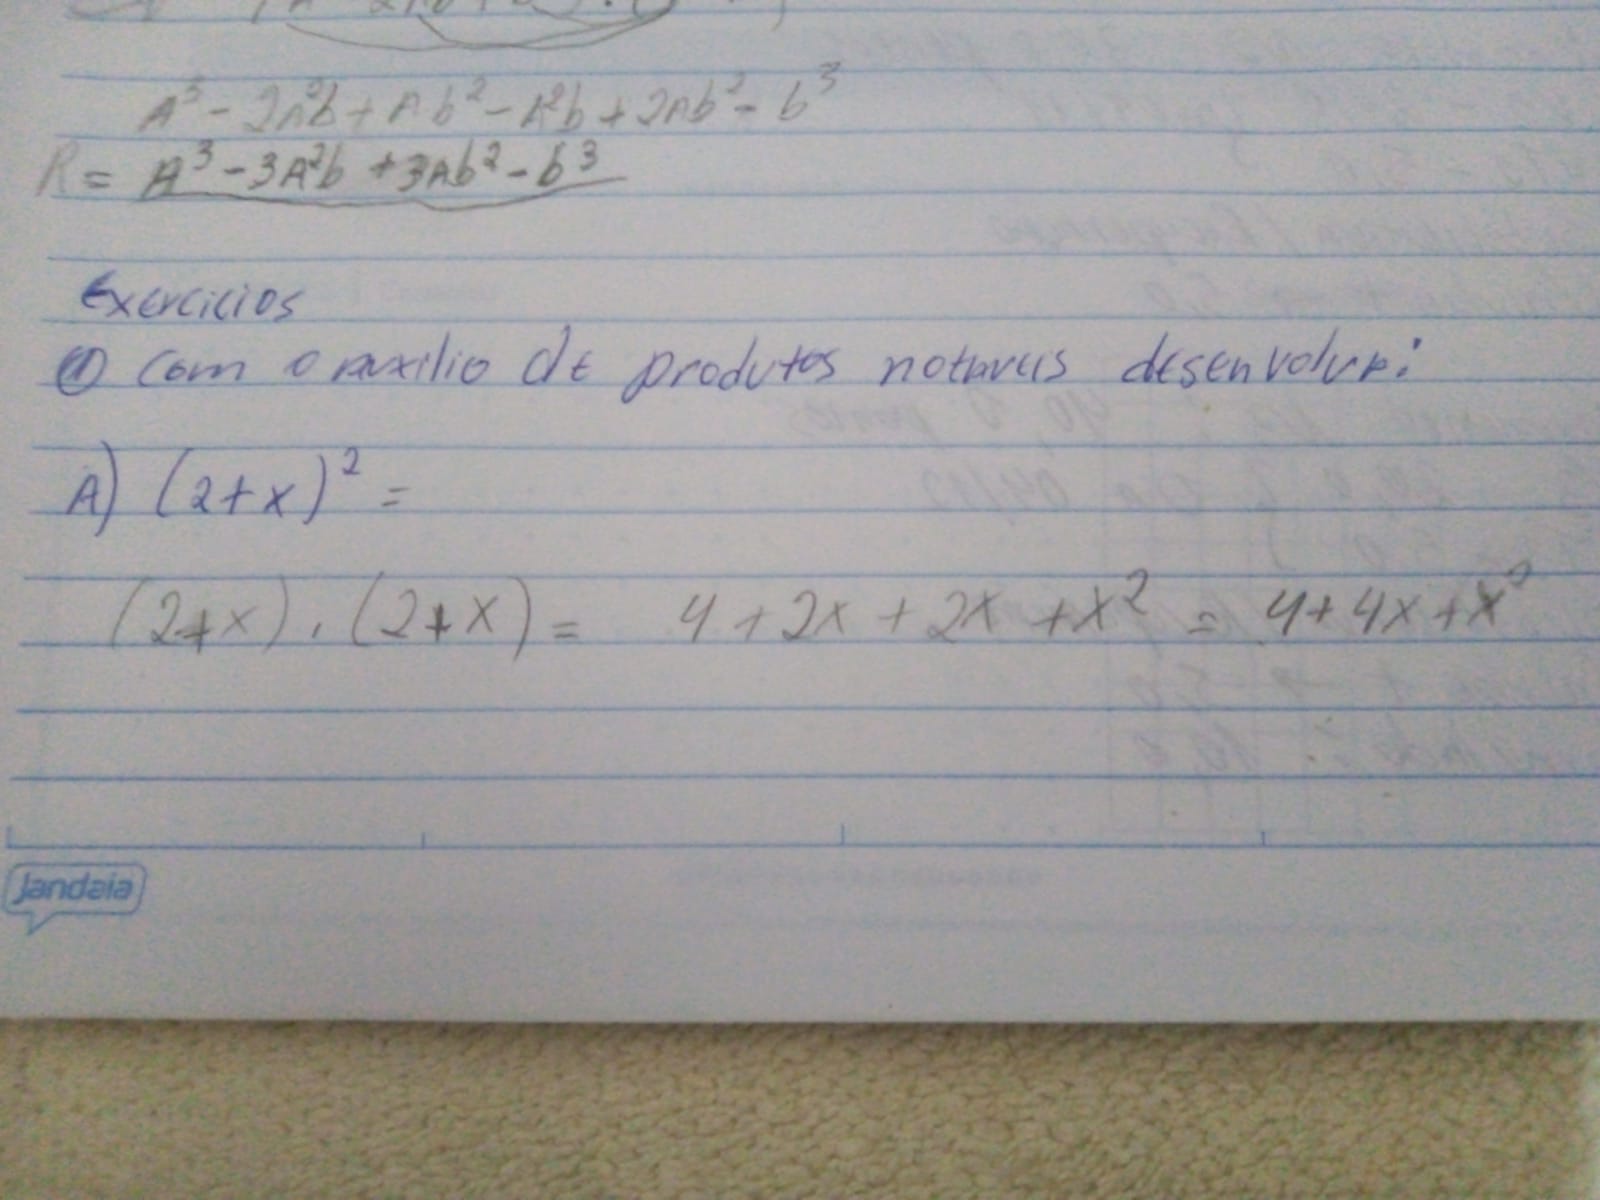 A³ - 2A²b + Ab² - A²b + 2Ab² - b³
R = A³ - 3A²b + 3Ab² - b³
Exercicios
① Com o auxilio de produtos notaveis desenvolva:
A) (2+x)² =
(2+x) . (2+x) = 4 + 2x + 2x + x² = 4 + 4x + x²
jandaia